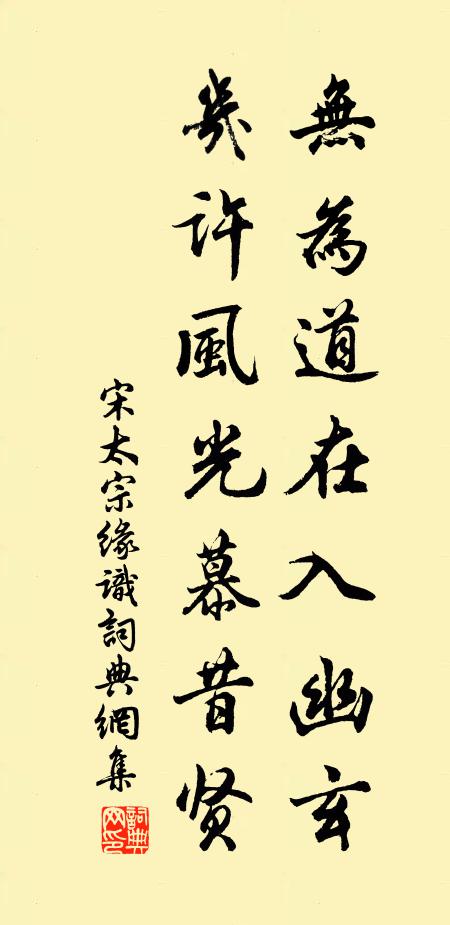 無為道在入幽玄
幾許風光慕昔贤
宋太宗緣識詞典網集
詞典網印